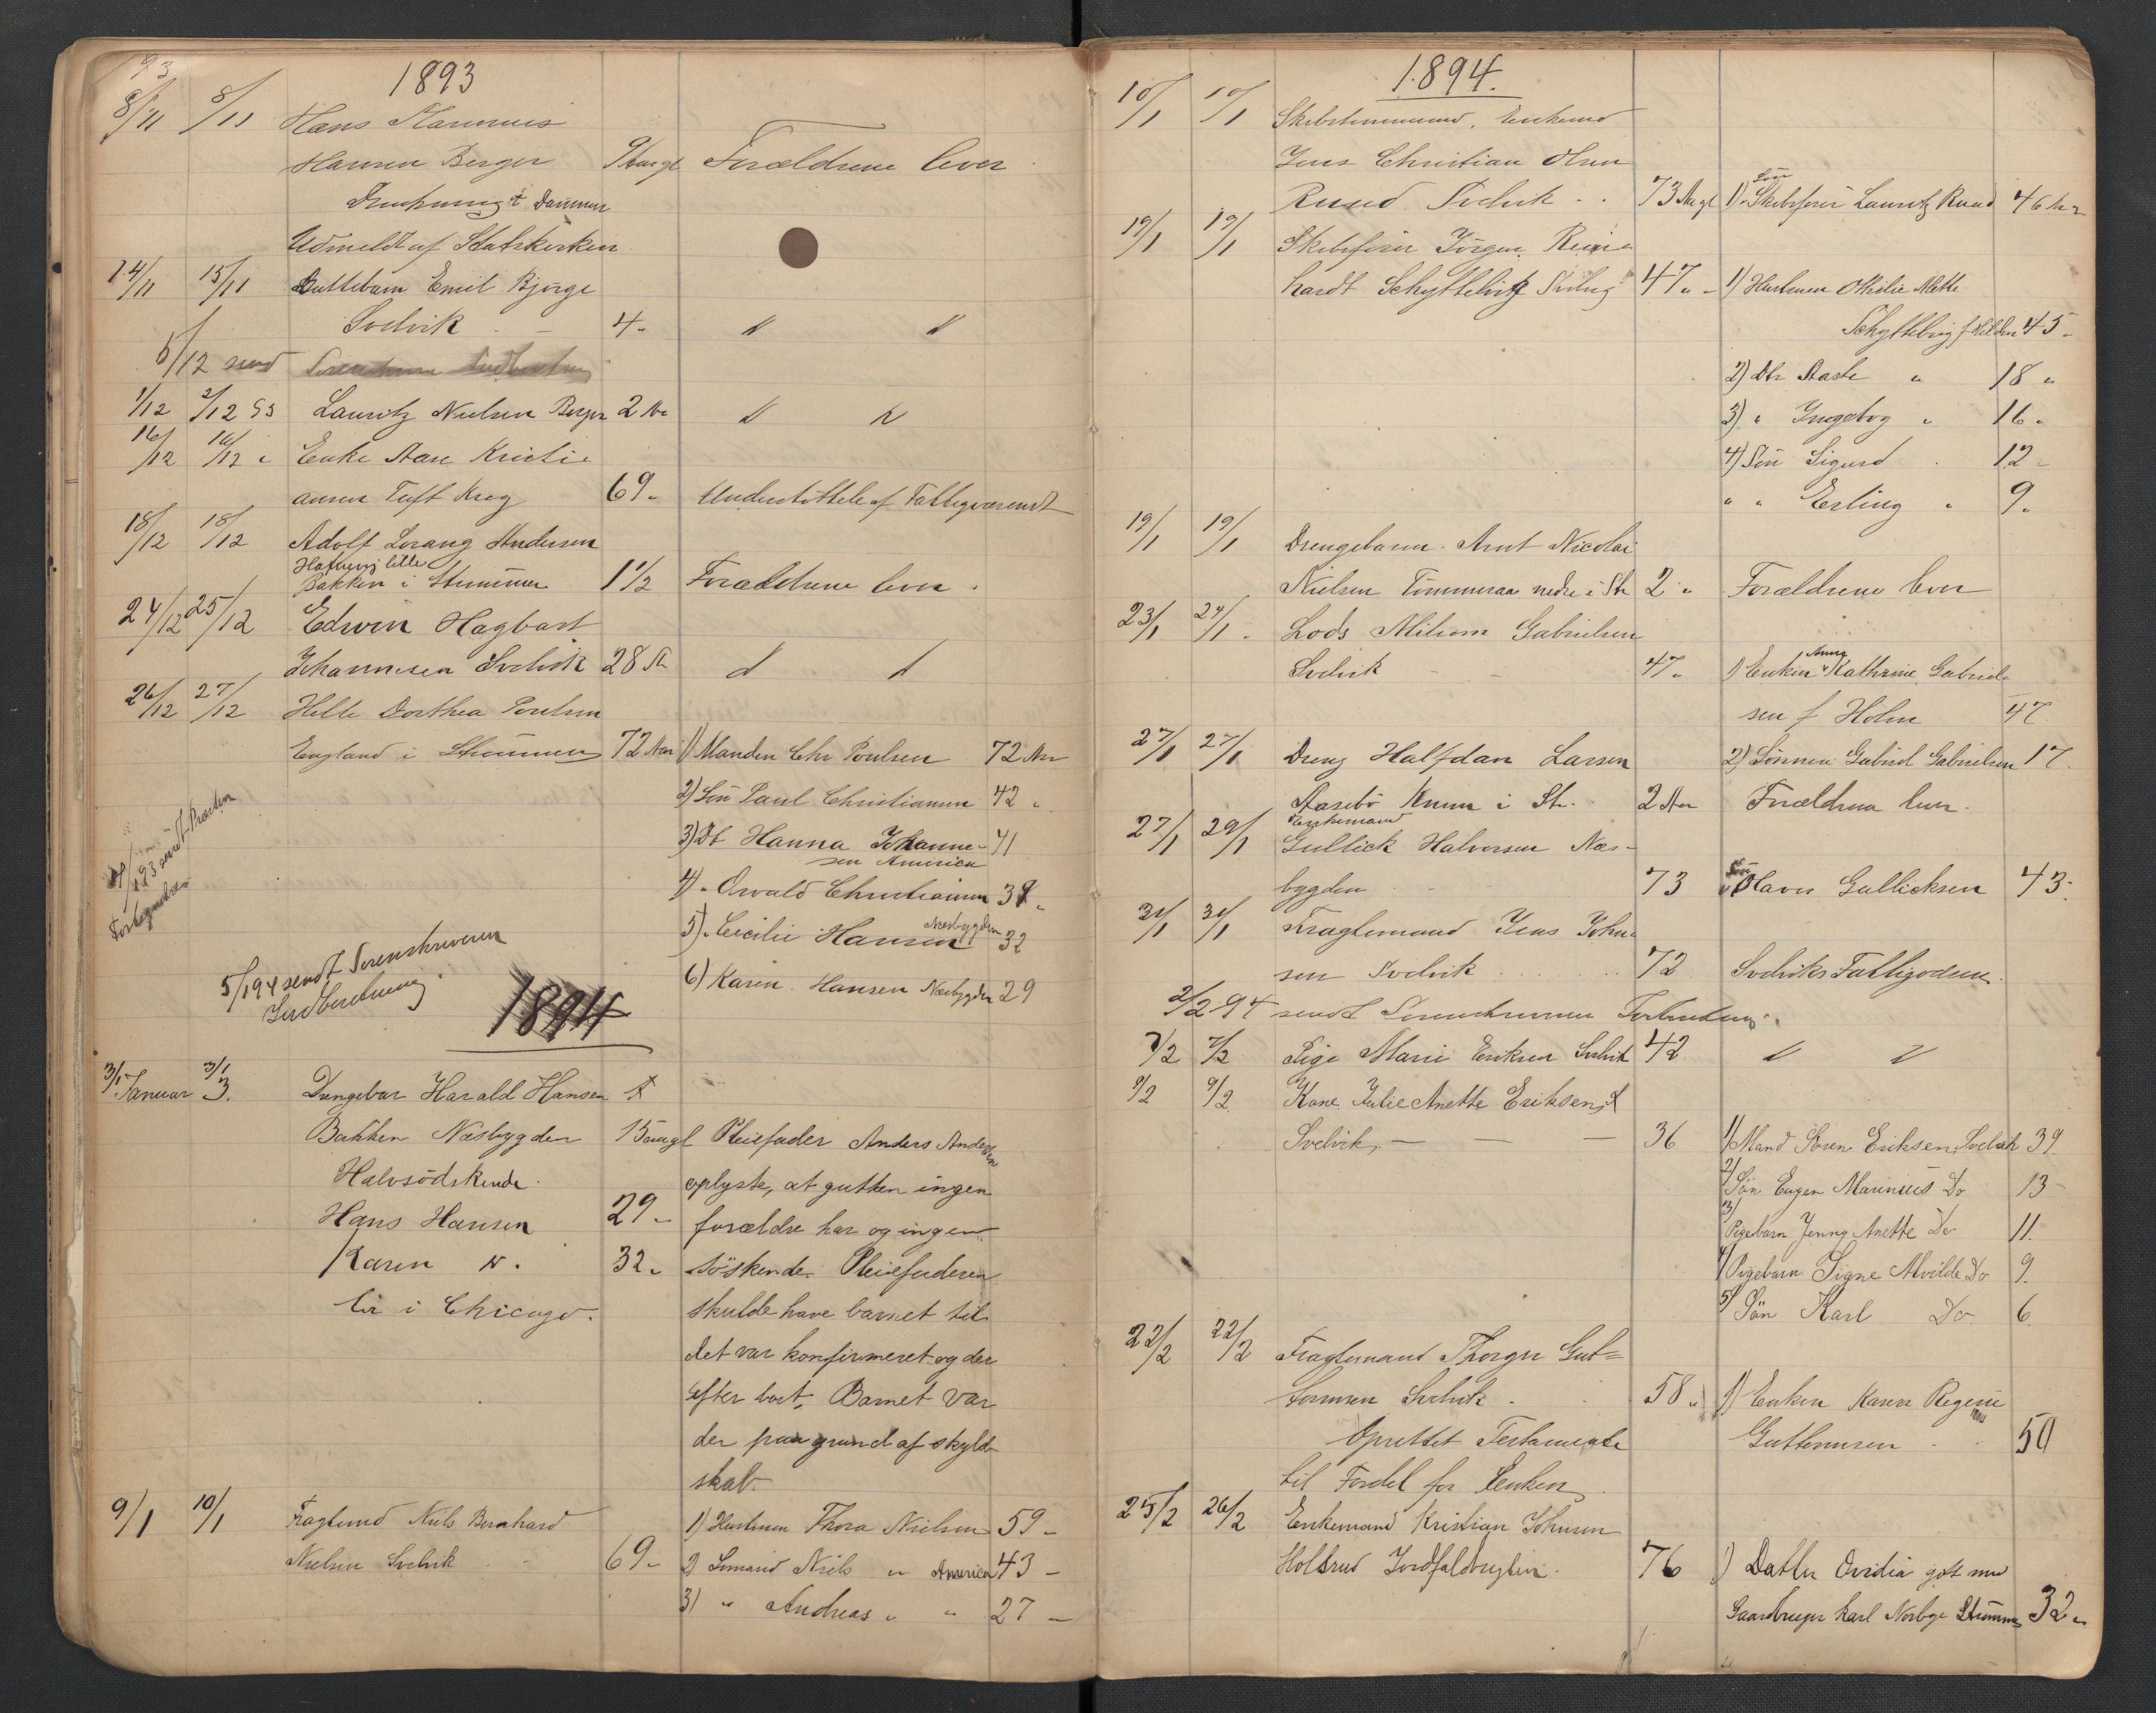 93
1893
8/11 8/11 Hans
Hansen Berger 9 Aar gl Forældrene lever
Udmeldt af Statskirken
14/11 15/11 Guttebarn Emil Bjørge
Svelvik - 4 "
5/12 send
1/12 2/12 93 Lauritz Nielsen Berger 2 Aar
16/12 16/12 Enke Aase Kristi-
ansen Tuft Krog 69 " Understøttet af Fattigvæsenet
18/12 18/12 Adolf Lorang Andersen
Bakken i Strømmen 1 1/2 Forældrene lever.
24/12 25/12 Edwin Hagbart
Johannesen Svelvik 28 Aar
26/12 27/12 Helle Dorthea Poulsen
England i Strømmen 72 Aar 1) Manden Chr Poulsen 72 Aar
2) Søn Paul Christiansen 42 "
3) Dt Hanna Johanne- 41
sen America
4) " Osvald Christiansen 38 "
5) " Cecilie Hansen Næsbygden 32
6) Karin Hansen Næsbygden 29
5/1 94 sendt Sorenskriveren
Indberetning
1894
3/1 Januar 3/1 3. Drengebar Harald Hansen
Bakken Næsbygden 15 aar gl Pleiefader Anders Andersen
Halvsødskende oplyste, at gutten ingen
Hans Hansen 29 " forældre har og ingen
Karen " 32 " søskende. Pleiefaderen
bor i Chicago. skulde have barnet til
det var konfirmeret og der
efter bort. Barnet var
der paa grund af skyld
skab.
9/1 10/1 Fragtemd Nils Bernhard 1) Hustruen Thora Nielsen 59 -
Nielsen Svelvik 69 - 2) Sømand Nils " America 43 -
3) " Andreas " " 27 -
1894.
10/1 10/1 Skibstømmermd. Enkemd
Jens Christian Olsen
Ruud Svelvik 73 Aar gl 1) Søn Skibsfører Lauritz Ruud 46 Aar
19/1 19/1 Skibsfører Jørgen Rein-
hardt Schyttelvig Svelvig 47 " 1) Hustruen Othilie Mette
Schyttelvig f. Hilden 45 "
2) Dtr Aasta " 18 "
3) " Ingeborg " 16 "
4) Søn Sigurd 12 "
" " Erling " 9 "
19/1 19/1 Drengebarn Arnt Nicolai
Nielsen Tømmeraas nedre i Str 2 " Forældrene lever
23/1 24/1 Lods Gabrielsen
Svelvik - - 47 " 1) Enken Anna Kathrine Gabriel-
sen f Holm 47
2) Sønnen Gabriel Gabrielsen 17
27/1 27/1 Dreng Halfdan Larsen
i Str. 2 Aar Forældrene lever.
27/1 29/1 Enkemand
Gullick Halvorsen Næs-
bygden 73 Søn Olaves Gullicksen 43 "
31/1 31/1 Fragtemand Jens Johan-
sen Svelvik 72 Svelviks Fattigvæsen
2/2 94 sendt Sorenskriveren
7/2 7/2 Pige Marie Eriksen Svelvik 42
9/2 9/2 Kone Julie Anette Eriksen,
Svelvik, - - - 36 1) Mand Søren Eriksen Svelvik 39.
2) Søn Eugen Marinius Do 13
3) Pigebarn Jenny Anette Do 11.
4) Pigebarn Signe Alvilde Do 9.
5) Søn Karl Do 6.
22/2 22/2 Fragtemand Thorger Gut-
tormsen Svelvik 58 " 1) Enken Karen Regine
Guttormsen 50
Oprettet Testamente
til Fordel for Enken
25/2 26/2 Enkemand Kristian Johnsen
Holtsrud 76 1) Datter Ovidia gift med
Gaardbruger Karl Norbye Strømmen 32 "